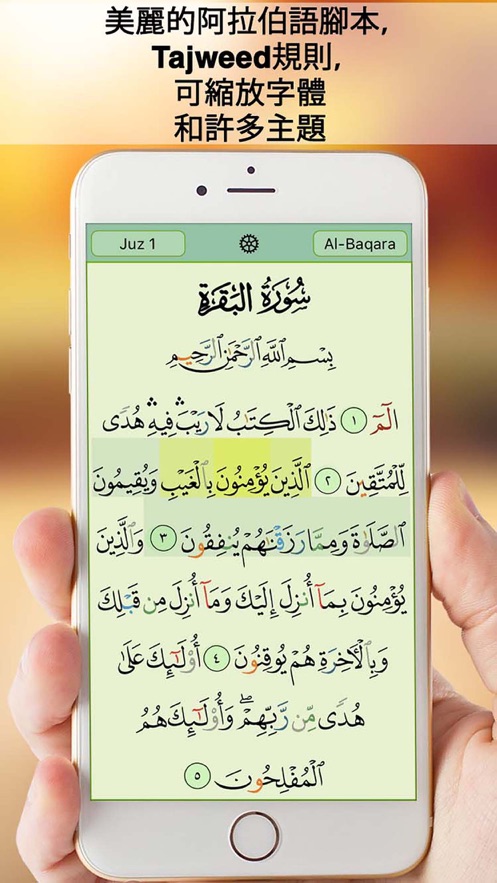 美麗的阿拉伯語腳本,
Tajweed規則,
可縮放字體
和許多主題
Juz 1 Al-Baqara
سُورَةُ البَقَرَةِ
بِسْمِ ٱللَّهِ ٱلرَّحْمَٰنِ ٱلرَّحِيمِ
الٓمٓ ١ ذَٰلِكَ ٱلْكِتَٰبُ لَا رَيْبَ ۛ فِيهِ ۛ هُدًى
لِّلْمُتَّقِينَ ٢ ٱلَّذِينَ يُؤْمِنُونَ بِٱلْغَيْبِ وَيُقِيمُونَ
ٱلصَّلَوٰةَ وَمِمَّا رَزَقْنَٰهُمْ يُنفِقُونَ ٣ وَٱلَّذِينَ
يُؤْمِنُونَ بِمَآ أُنزِلَ إِلَيْكَ وَمَآ أُنزِلَ مِن قَبْلِكَ
وَبِٱلْأَخِرَةِ هُمْ يُوقِنُونَ ٤ أُوْلَٰٓئِكَ عَلَىٰ
هُدًى مِّن رَّبِّهِمْ ۖ وَأُوْلَٰٓئِكَ هُمُ
ٱلْمُفْلِحُونَ ٥